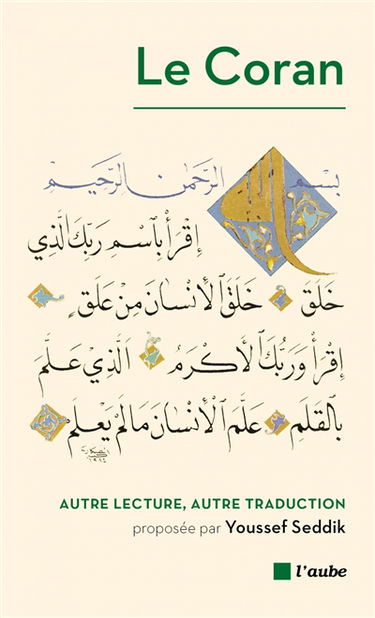 Le Coran
بسم الله الرَّحْمٰنِ الرَّحِيْمِ
اِقْرَأْ بِاسْمِ رَبِّكَ الَّذِي
خَلَقَ خَلَقَ الْاِنْسَانَ مِنْ عَلَقٍ
اِقْرَأْ وَرَبُّكَ الْاَكْرَمُ الَّذِي عَلَّمَ
بِالْقَلَمِ عَلَّمَ الْاِنْسَانَ مَا لَمْ يَعْلَمْ
AUTRE LECTURE, AUTRE TRADUCTION
proposée par Youssef Seddik
l'aube